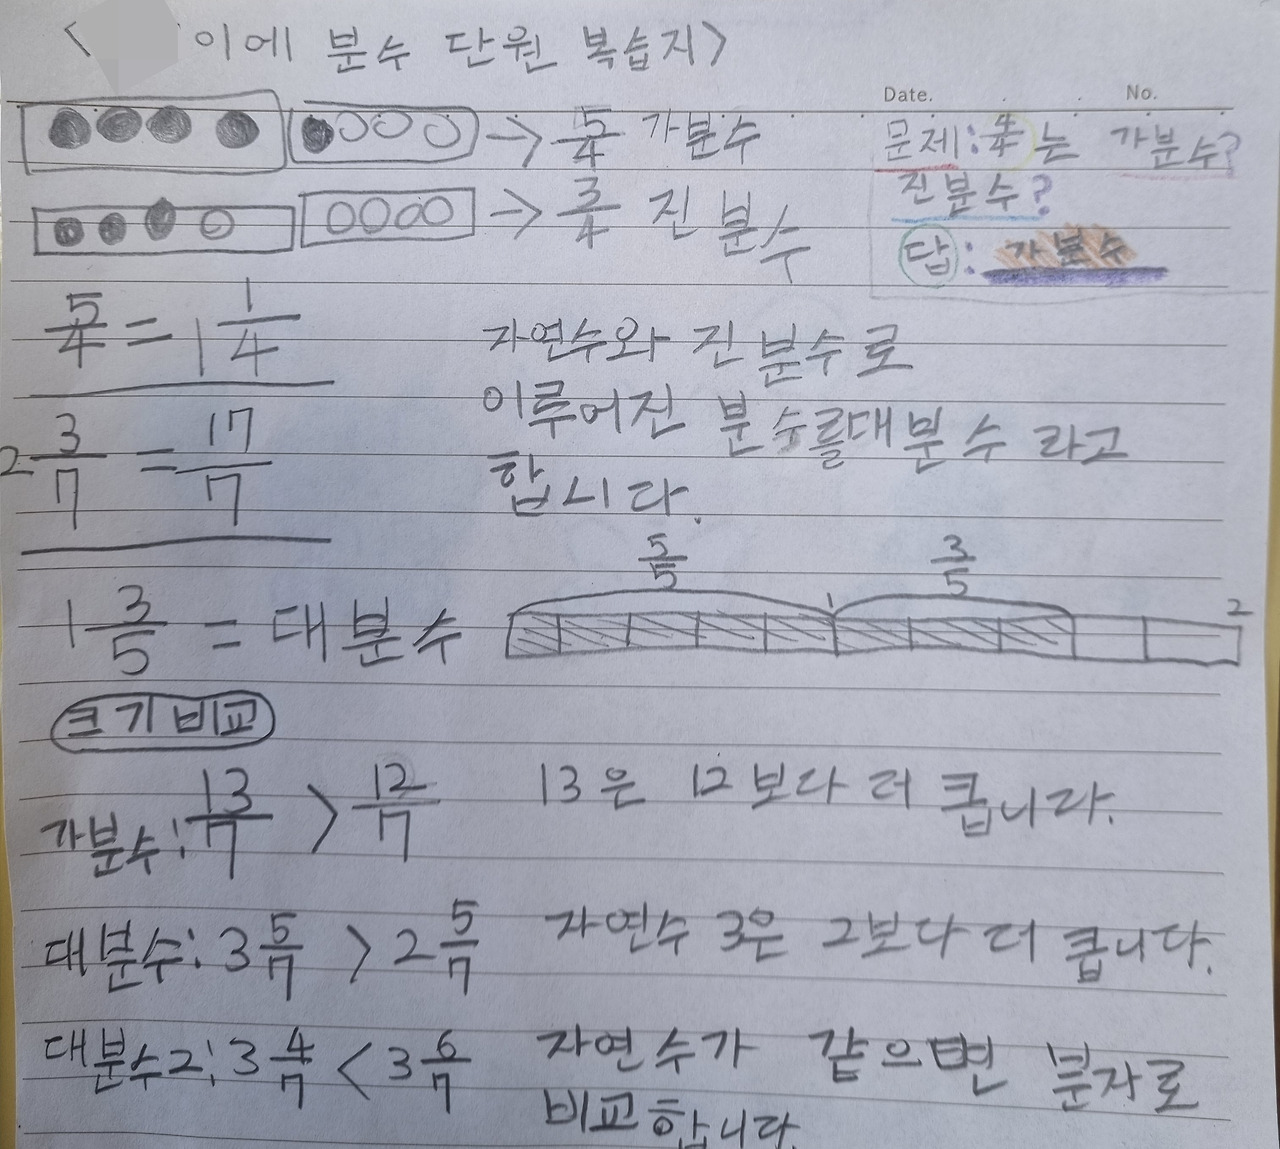 < 이에 분수 단원 복습지>
Date. No.
→ 5/4 가분수
문제: 4/4는 가분수?
진분수?
→ 3/4 진분수
답: 가분수
5/4 = 1 1/4
자연수와 진분수로
이루어진 분수를대분수 라고
합시다.
2 3/7 = 17/7
5/5 3/5
1 2
1 3/5 = 대분수
크기비교
가분수: 13/7 > 12/7 13은 12보다 더 큽니다.
대분수: 3 5/7 > 2 5/7 자연수 3은 2보다 더 큽니다.
대분수2: 3 4/7 < 3 6/7 자연수가 같으면 분자로
비교합니다.